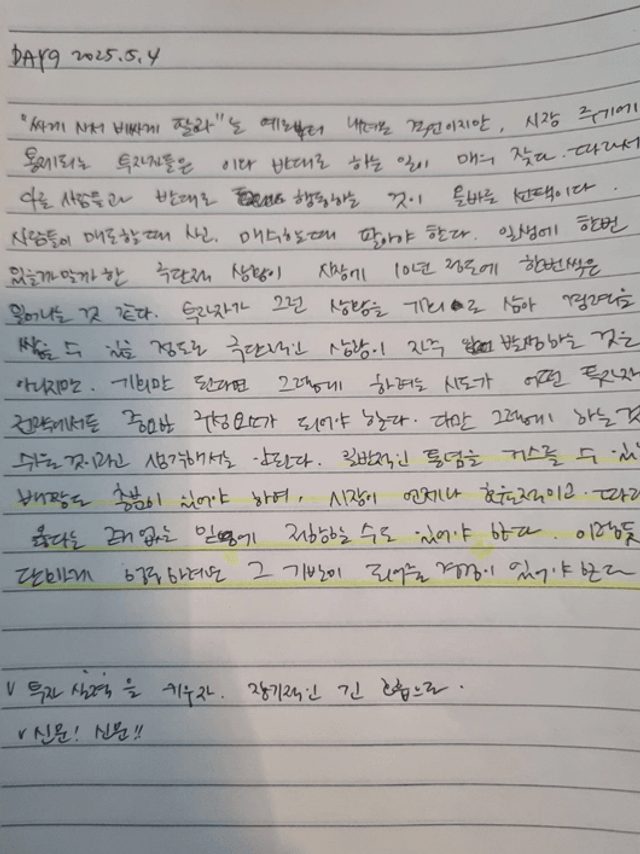 DAY9 2025.5.4
"싸게 사서 비싸게 팔라"는 예로부터 내려온 격언이지만, 시장 주기에
통제되는 투자자들은 이와 반대로 하는 일이 매우 잦다. 따라서
다른 사람들과 반대로 행동하는 것이 올바른 선택이다.
사람들이 매도할때 사고, 매수할때 팔아야 한다. 일생에 한번
있을까말까한 극단적 상황이 시장에 10년 정도에 한번씩은
일어나는 것 같다. 투자자가 그런 상황을 기회로 삼아 경력을
쌓을 수 있을 정도로 극단적인 상황이 자주 발생하는 것은
아니지만. 기회만 된다면 그렇게 하려는 시도가 어떤 투자자
전략에서든 중요한 구성요소가 되어야 한다. 다만 그렇게 하는 것
쉬울것이라고 생각해서는 안된다. 일반적인 통념을 거스를 수 있
배짱도 충분히 있어야 하며, 시장이 언제나 효율적이고 따라
옳다는 근거 없는 믿음에 저항할 수도 있어야 한다. 이렇듯
단호하게 행동하려면 그 기반이 되어줄 경험이 있어야 한다
v 투자 실력을 키우자. 장기적인 긴 호흡으로.
v 신문! 신문!!